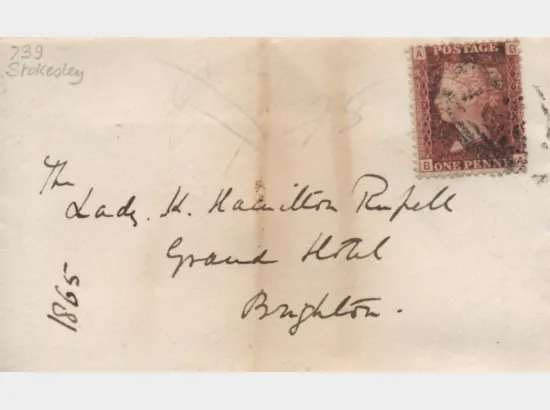 739
Stokesley
A POSTAGE B
B ONE PENNY A
The
Lady K. Hamilton Rufsell
Grand Hotel
Brighton.
1865